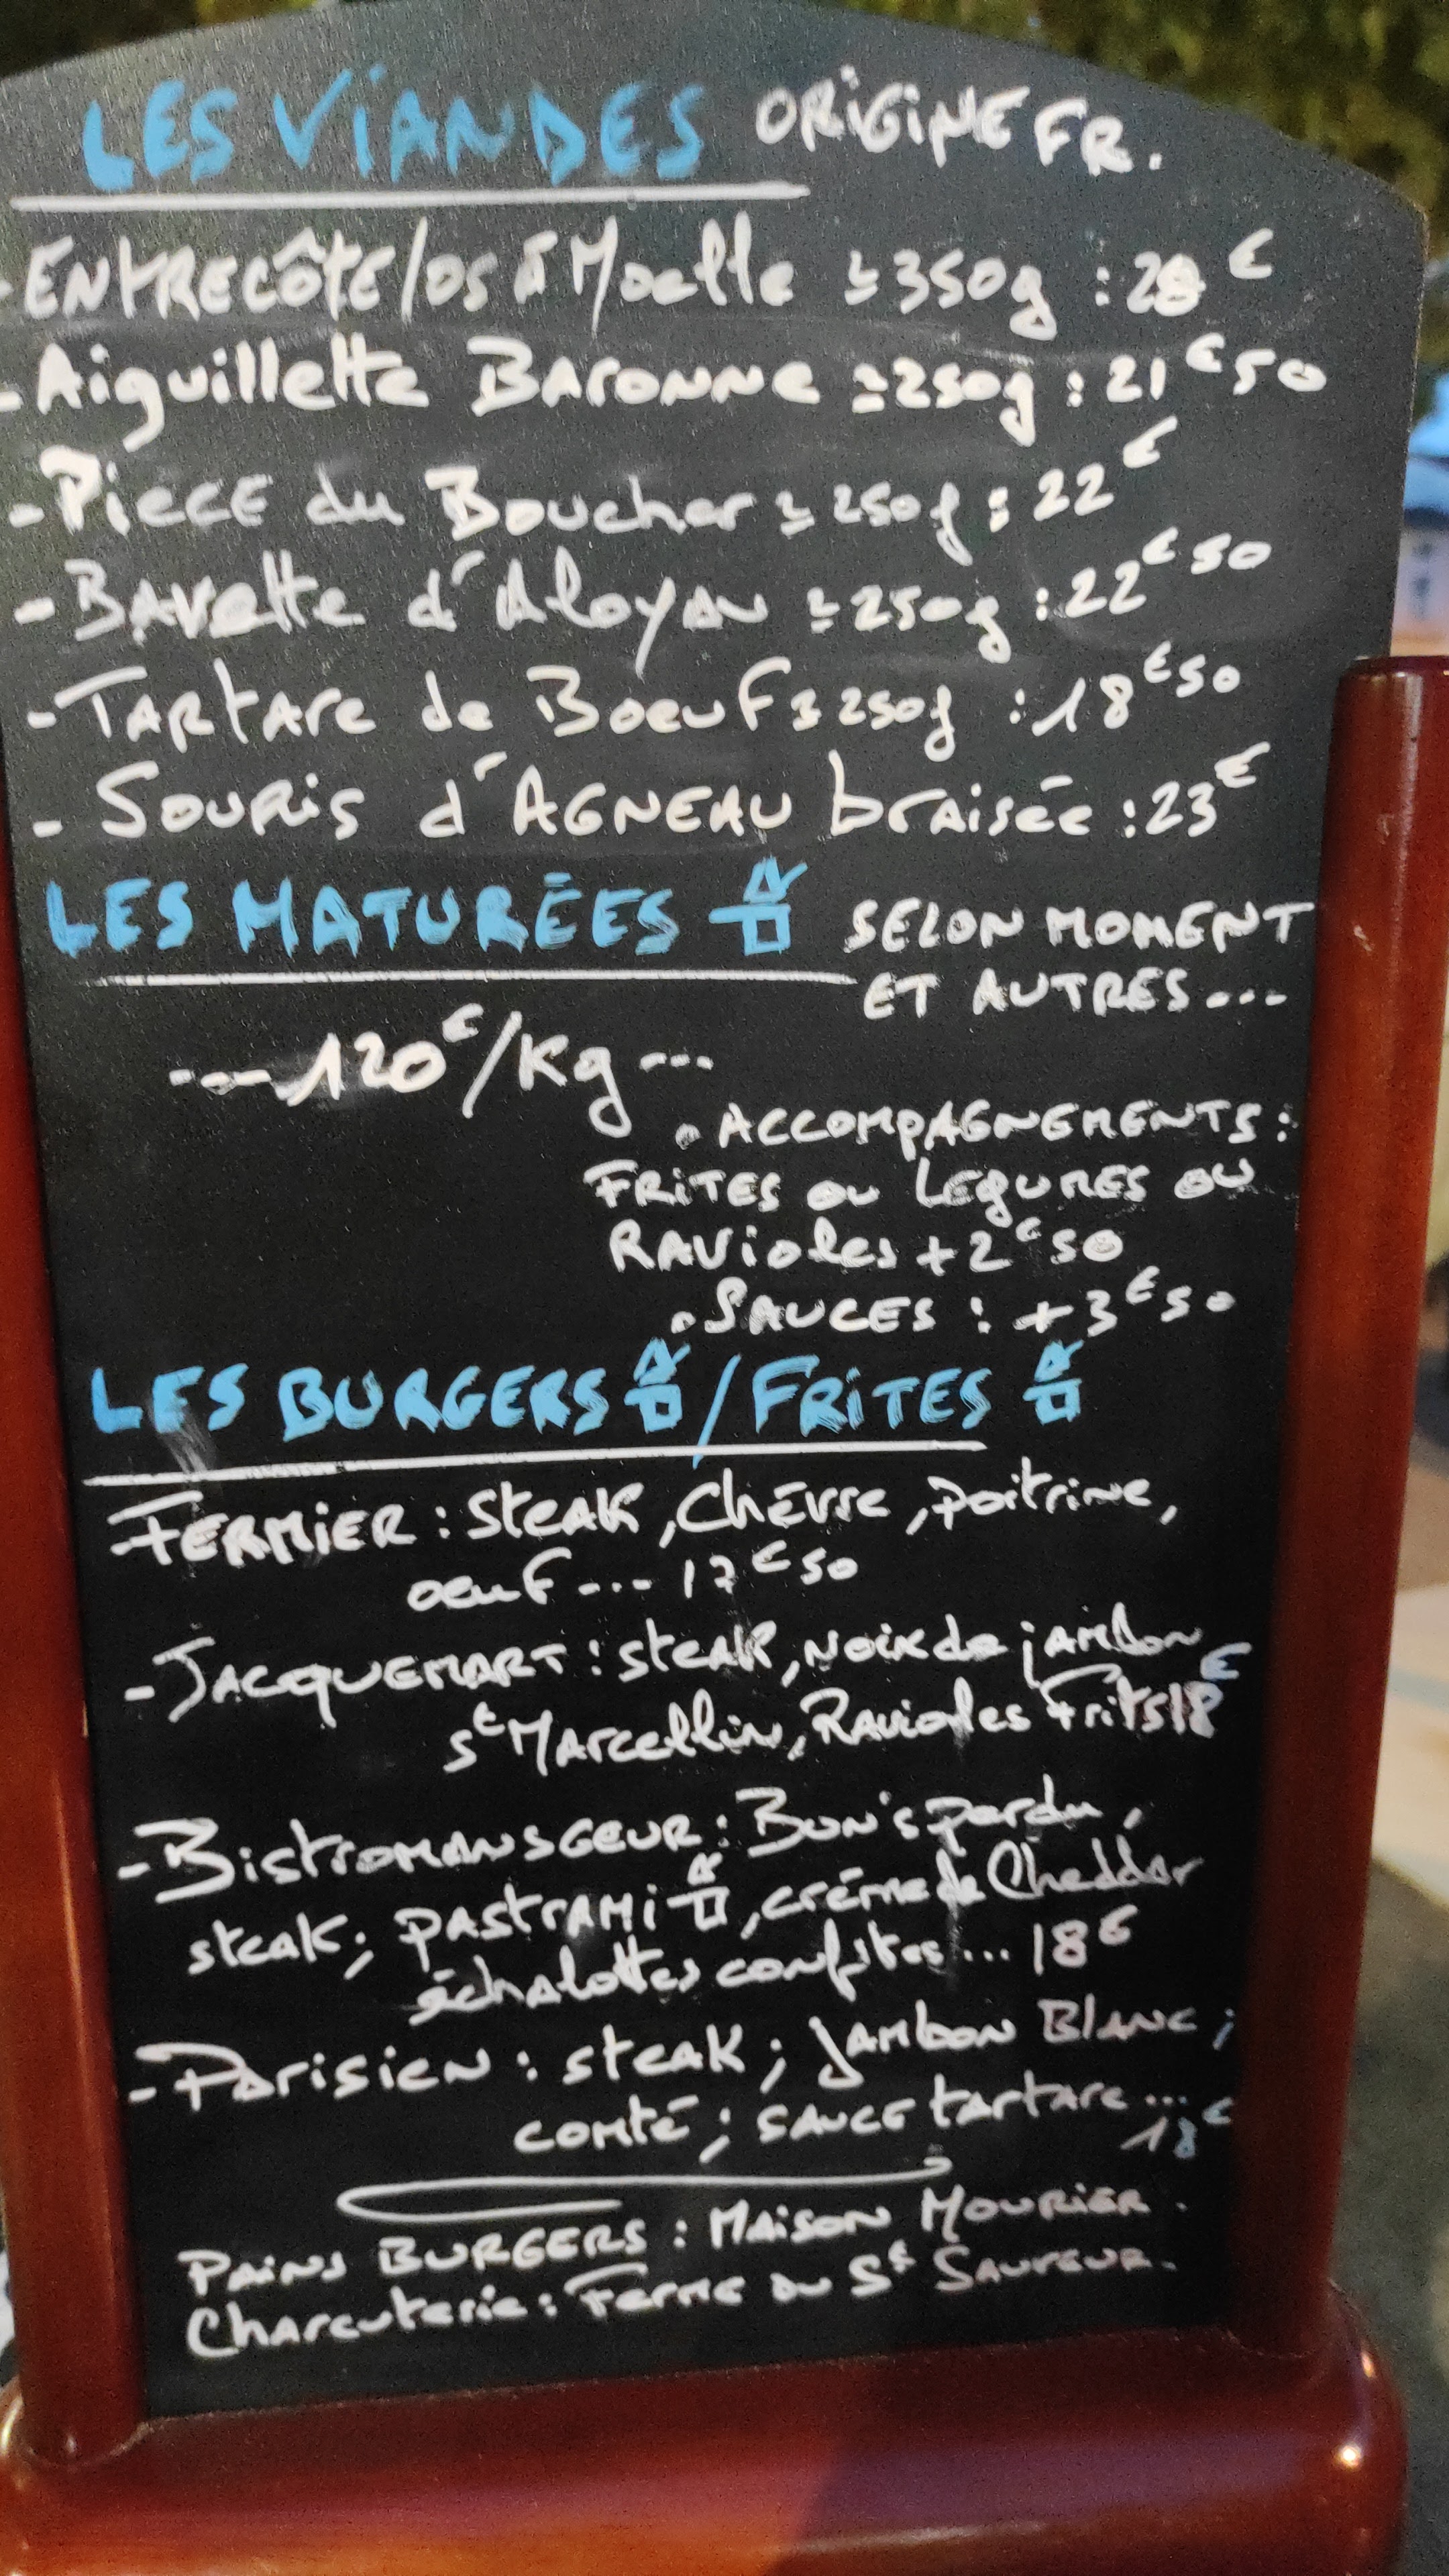 LES VIANDES ORIGINE FR.
- ENTRECÔTE/OS À Moelle ≃350g : 28€
- Aiguillette BARONNE ≃250g : 21€50
- PIECE du Boucher ≃ 250g : 22€
- BAVETTE d'Aloyau ≃250g : 22€50
- TARTARE de Boeuf ≃ 250g : 18€50
- SOURIS d'AGNEAU braisée : 23€
LES MATURÉES SELON MOMENT
ET AUTRES...
--- 120€/Kg ---
. ACCOMPAGNEMENTS :
FRITES ou LEGUMES ou
RAVioles + 2€50
. SAUCES : + 3€50
LES BURGERS / FRITES
- FERMIER : steak, Chèvre, poitrine,
oeuf --- 17€50
- JACQUEMART : steak, NOIX de jambon
St Marcellin, Ravioles Frits 18€
- BistromansGeur : Bun's perdu,
steak ; pastrami, crème de Cheddar
échalottes confites ... 18€
- Parisien : steak ; Jambon Blanc ;
comté ; sauce tartare ...
18€
PAINS BURGERS : MAISON MOURIER.
Charcuterie : Ferme du St SAUVEUR.